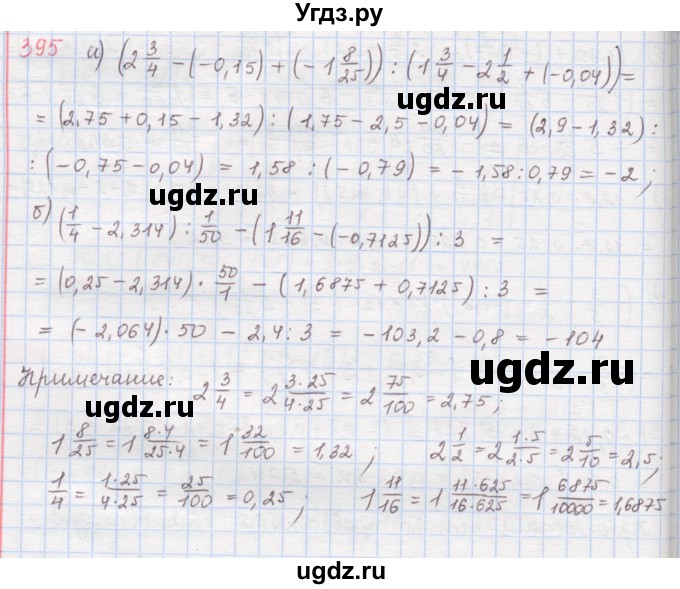 Угдз.ру
395 а) (2 3/4 − (−0,15) + (−1 8/25)) : (1 3/4 − 2 1/2 + (−0,04)) =
= (2,75 + 0,15 − 1,32) : (1,75 − 2,5 − 0,04) = (2,9 − 1,32) :
ugdz.ru
: (−0,75 − 0,04) = 1,58 : (−0,79) = −1,58 : 0,79 = −2;
ugdz.ru
б) (1/4 − 2,314) : 1/50 − (1 11/16 − (−0,7125)) : 3 =
= (0,25 − 2,314) · 50/1 − (1,6875 + 0,7125) : 3 =
ugdz.ru
= (−2,064) · 50 − 2,4 : 3 = −103,2 − 0,8 = −104
Примечание: 2 3/4 = 2 3·25/4·25 = 2 75/100 = 2,75;
ugdz.ru
1 8/25 = 1 8·4/25·4 = 1 32/100 = 1,32; 2 1/2 = 2 1·5/2·5 = 2 5/10 = 2,5;
1/4 = 1·25/4·25 = 25/100 = 0,25; 1 11/16 = 1 11·625/16·625 = 1 6875/10000 = 1,6875
ugdz.ru
ugdz.ru